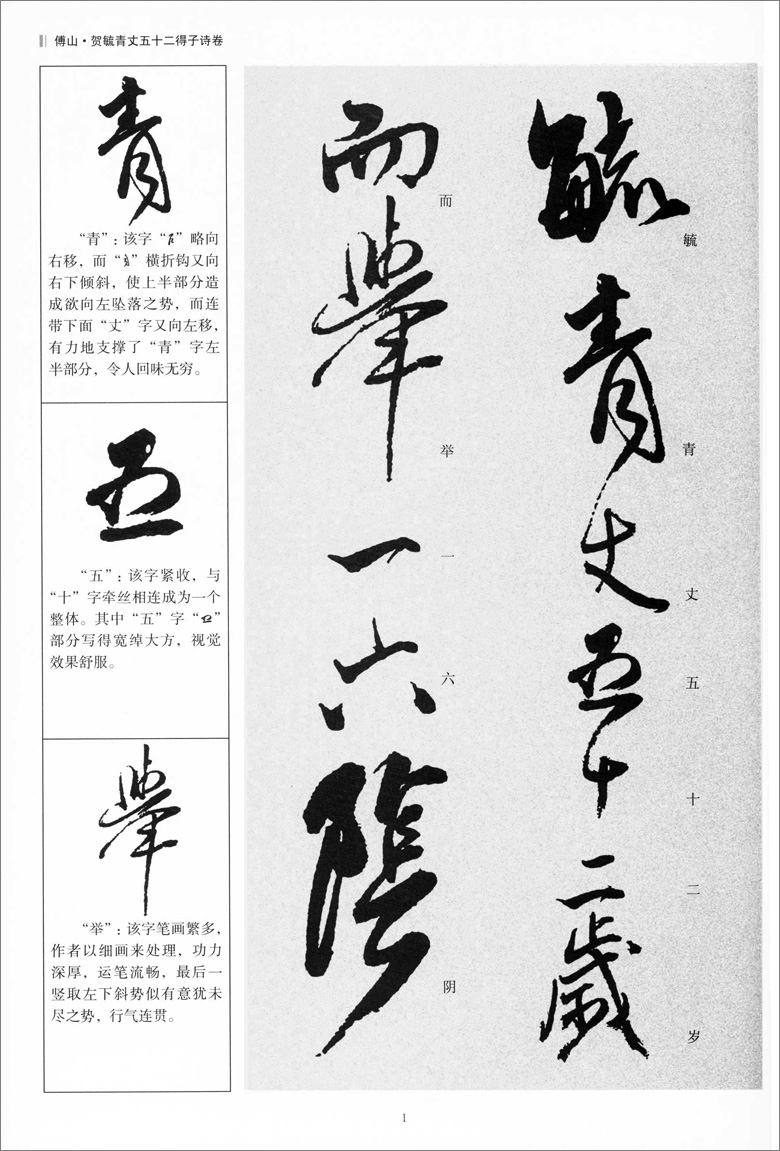 傅山·贺毓青丈五十二得子诗卷
青
“青”：该字“”略向
右移，而“”横折钩又向
右下倾斜，使上半部分造
成欲向左坠落之势，而连
带下面“丈”字又向左移，
有力地支撑了“青”字左
半部分，令人回味无穷。
五
“五”：该字紧收，与
“十”字牵丝相连成为一个
整体。其中“五”字“”
部分写得宽绰大方，视觉
效果舒服。
舉
“举”：该字笔画繁多，
作者以细画来处理，功力
深厚，运笔流畅，最后一
竖取左下斜势似有意犹未
尽之势，行气连贯。
毓青丈五十二歲
毓青丈五十二岁
而舉一六陰
而举一六阴
1